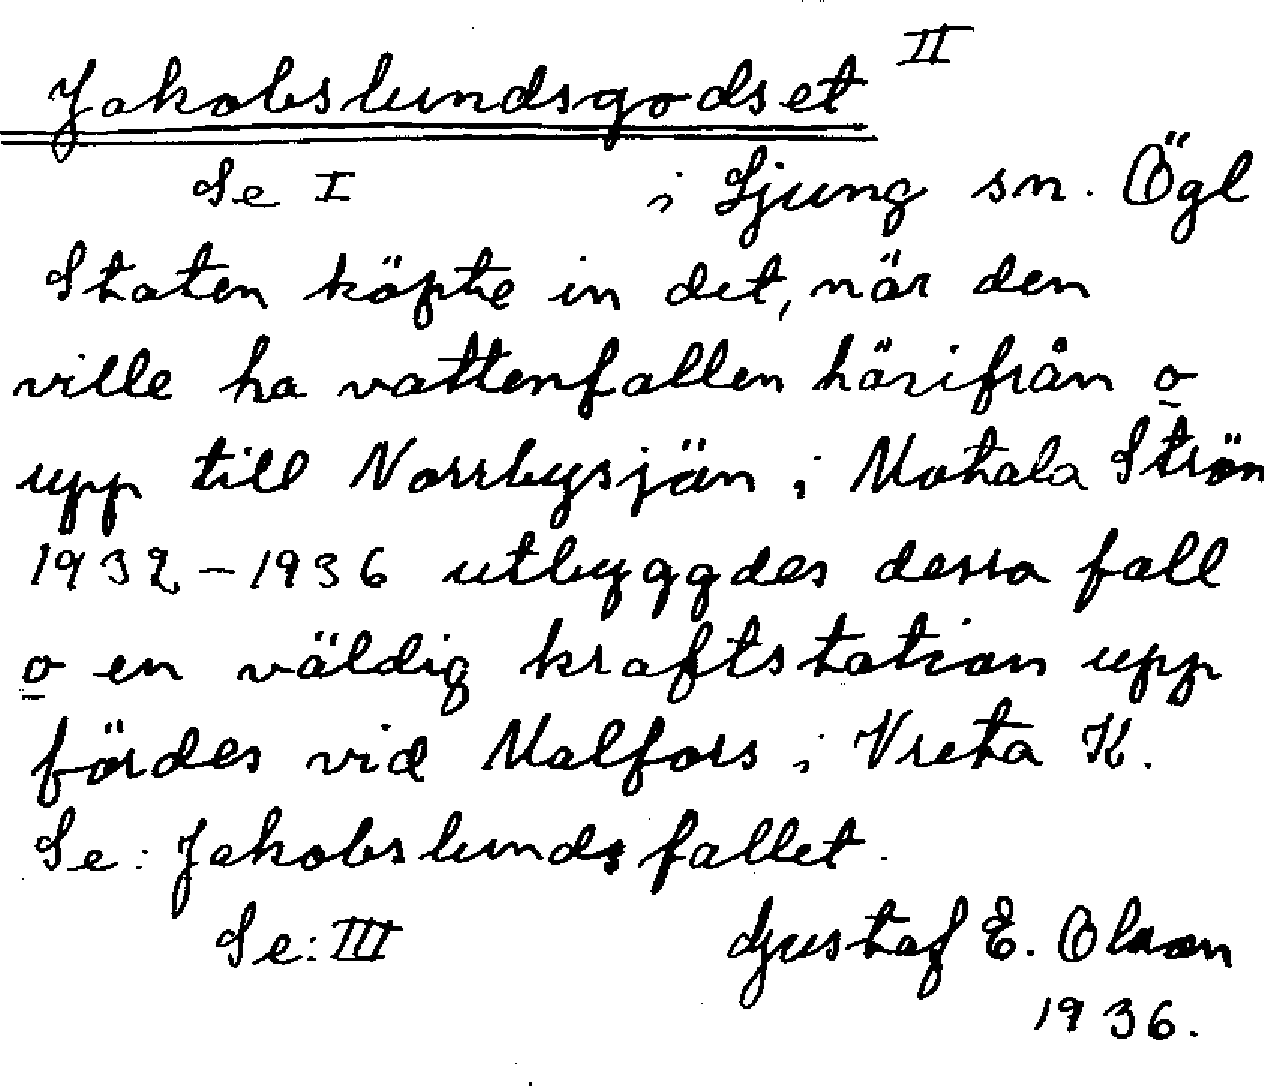 Jakobslundsgodset II
Se I i Ljung sn. Ögl
Staten köpte in det, när den
ville ha vattenfallen härifrån o
upp till Norrbysjön i Motala Ström
1932-1936 utbyggdes dessa fall
o en väldig kraftstation upp
fördes vid Malfors i Vreta K.
Se: Jakobslundsfallet.
Se: III Gustaf E. Olsson
1936.